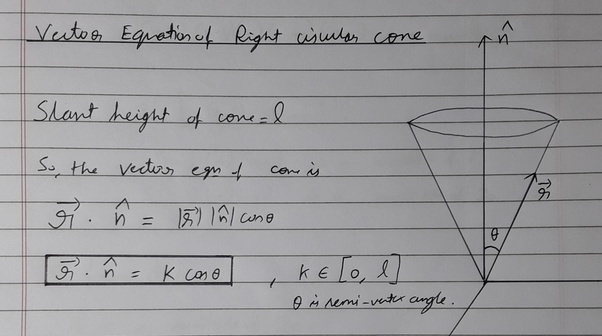 Vector Equation of Right circular cone
n̂
Slant height of cone = l
So, the vector eqn of cone is
r⃗ · n̂ = |r⃗| |n̂| cosθ
r⃗
θ
r⃗ · n̂ = K cosθ , K ∈ [0, l]
θ is semi-vertex angle.